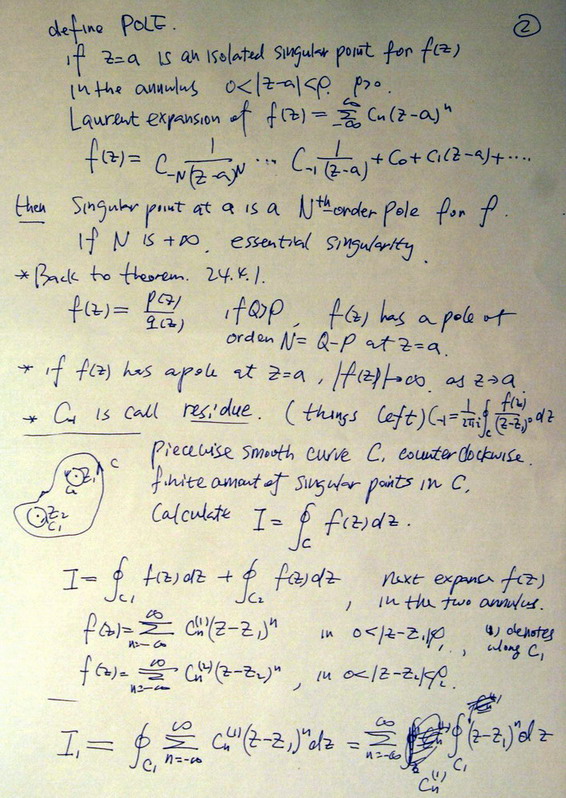 define POLE. ②
if z=a is an isolated singular point for f(z)
in the annulus 0<|z-a|<ρ. ρ>0.
Laurent expansion of f(z) = ∑_{-∞}^{∞} Cn(z-a)^n
f(z) = C_{-N} 1/(z-a)^N ... C_{-1} 1/(z-a) + C0 + C1(z-a) + ....
then Singular point at a is a Nth-order Pole for f.
If N is +∞, essential singularity.
* Back to theorem. 24.4.1.
f(z) = p(z)/q(z) if Q>P, f(z) has a pole of
order N = Q-P at z=a.
* if f(z) has a pole at z=a, |f(z)|→∞ as z→a.
* C_{-1} is call residue. (things left) C_{-1} = 1/2πi ∮_C f(z)/(z-z_1)^0 dz
piecewise smooth curve C, counterclockwise.
finite amount of singular points in C,
Calculate I = ∮_C f(z)dz.
Z1 C
Z2
C1
I = ∮_{C1} f(z)dz + ∮_{C2} f(z)dz , next expand f(z)
in the two annulus.
f(z) = ∑_{n=-∞}^{∞} Cn^{(1)}(z-z1)^n in 0<|z-z1|<ρ1, (1) denotes
along C1
f(z) = ∑_{n=-∞}^{∞} Cn^{(2)}(z-z2)^n, in 0<|z-z2|<ρ2.
I1 = ∮_{C1} ∑_{n=-∞}^{∞} Cn^{(1)}(z-z1)^n dz = ∑_{n=-∞}^{∞} Cn^{(1)} ∮_{C1} (z-z1)^n dz